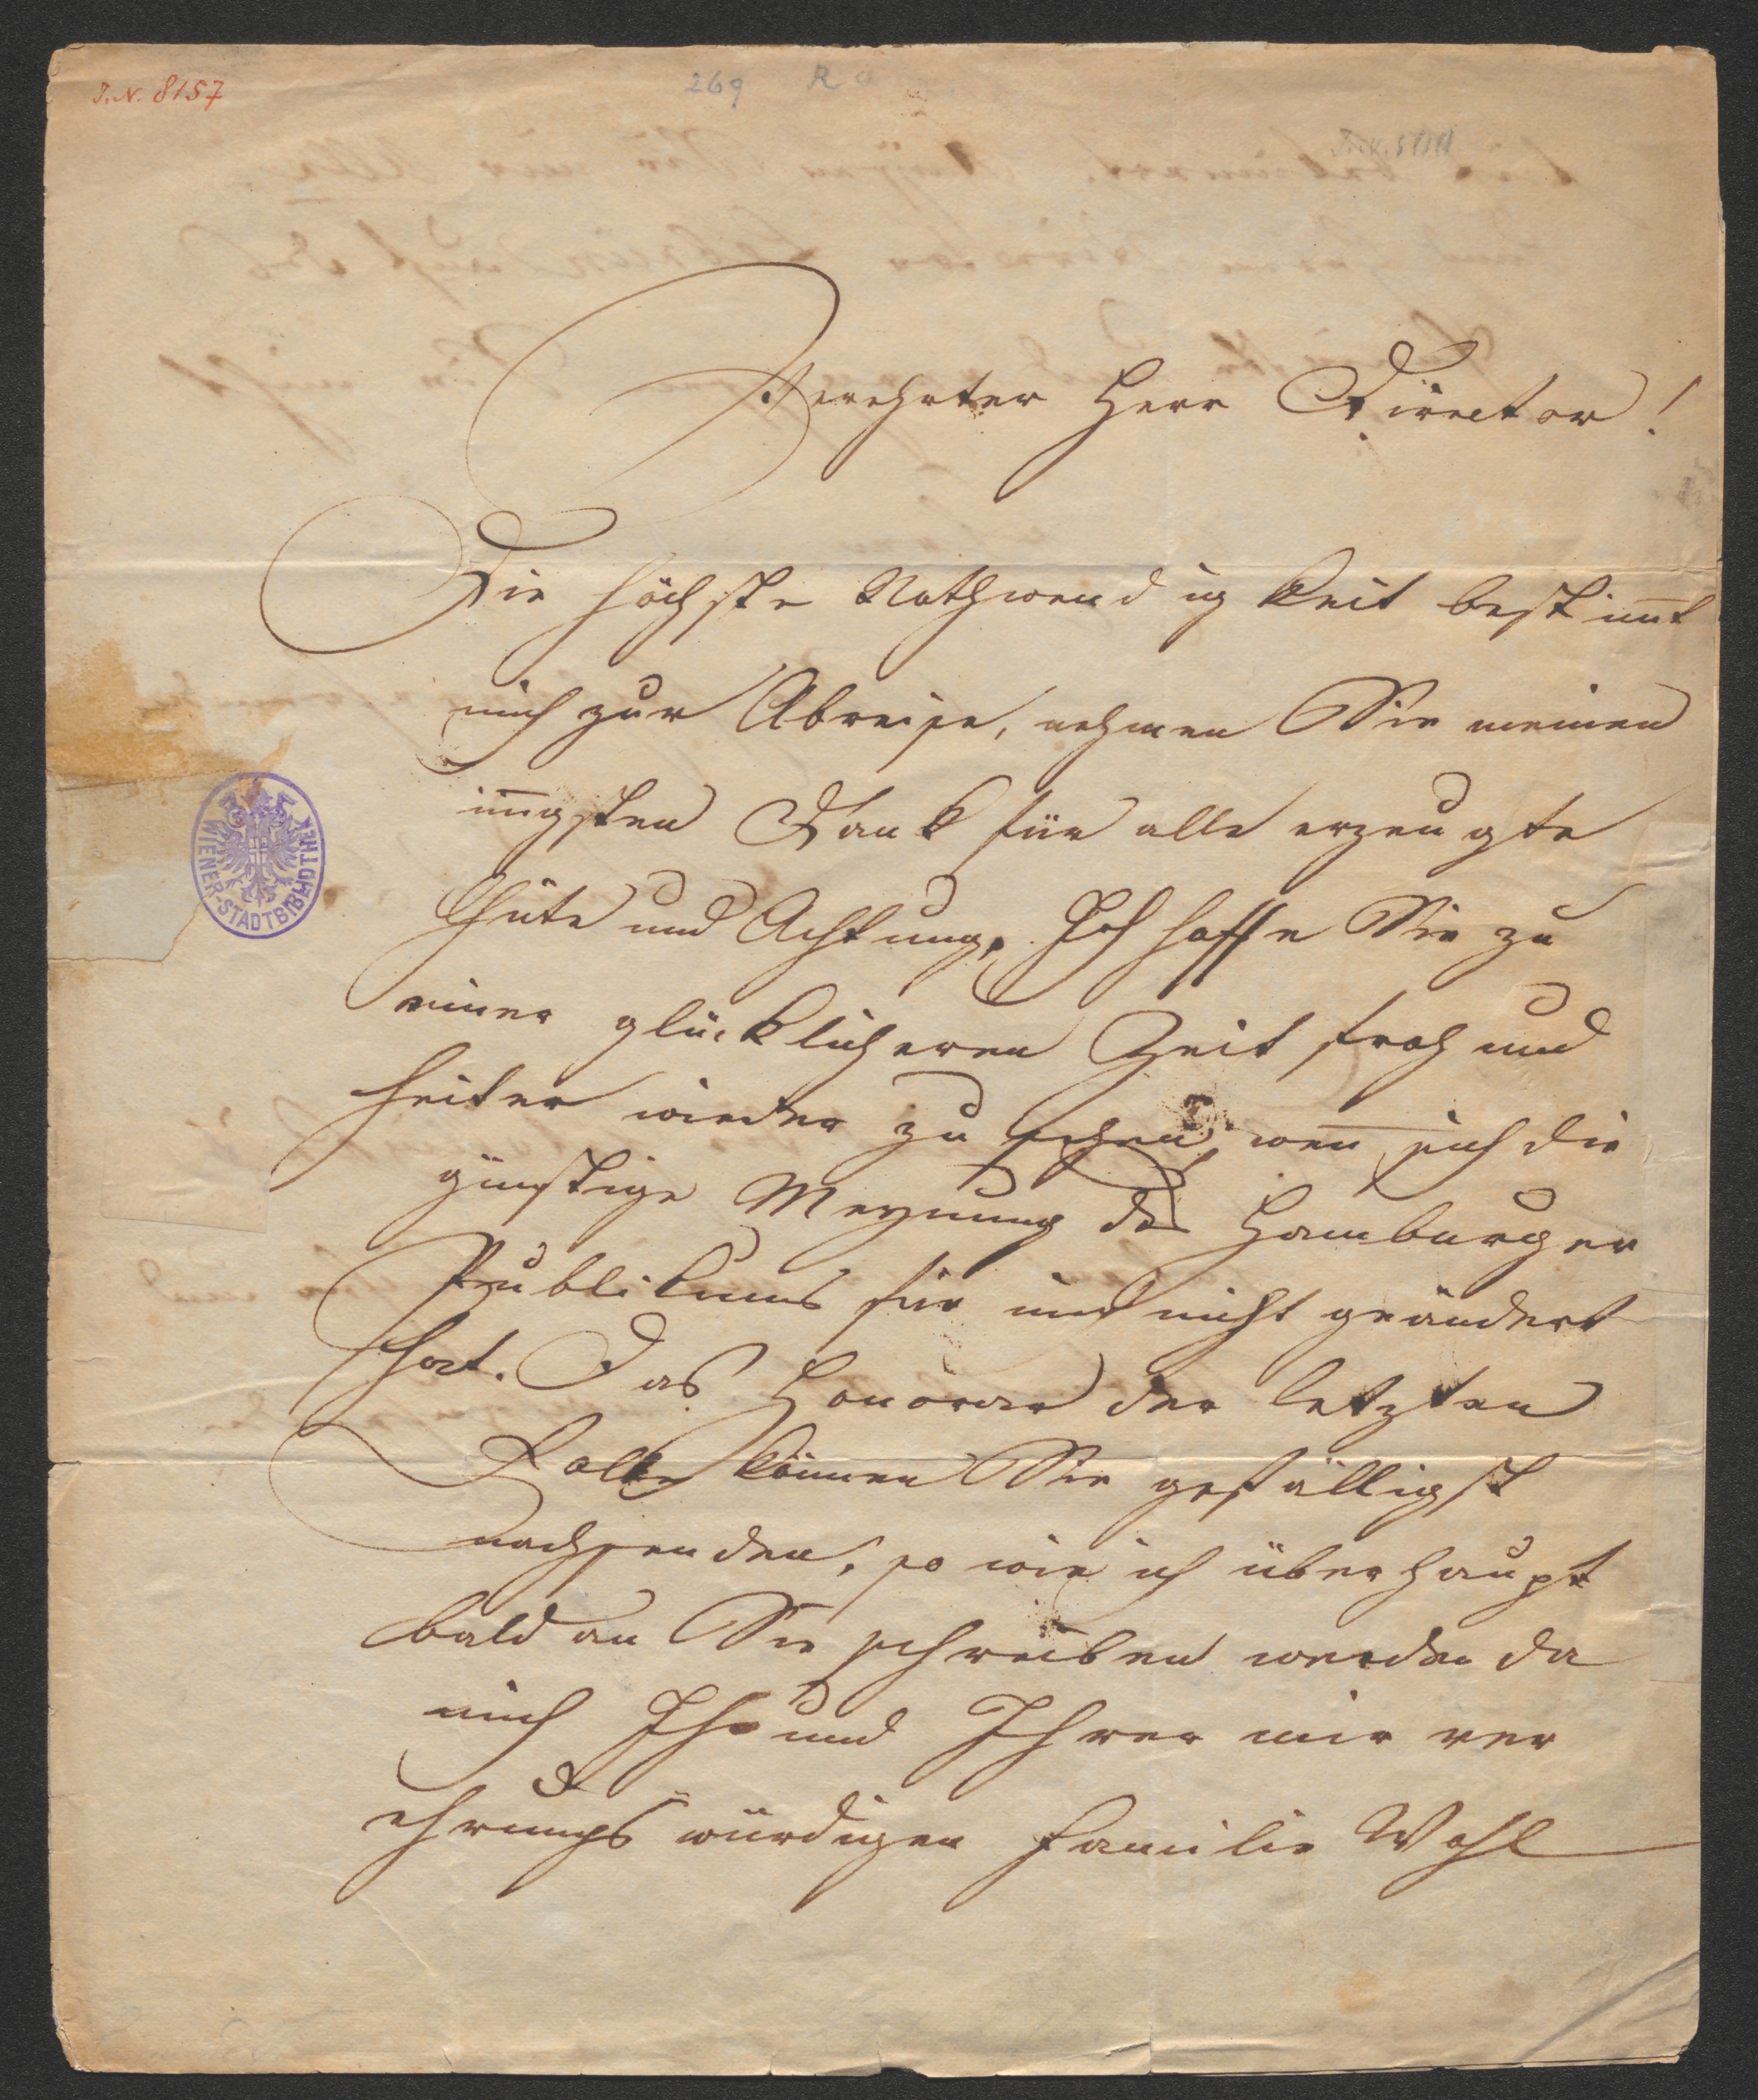 I.N. 8157
269 R
Verehrter Herr Director!
Die höchste Nothwendigkeit bestim̅t
mich zur Abreise, nehmen Sie meinen
in̅igsten Dank für alle erzeugte
Güte und Achtung. Ich hoffe Sie zu
einer glücklicheren Zeit froh und
heiter wieder zu sehen, wen̅ sich die
günstige Meynung des Hamburger
Publikums für mich nicht geändert
hat. Das Honorar der letzten
Rolle können Sie gefälligst
nachsenden, so wie ich überhaupt
bald an Sie schreiben werde da
mich Ihr und Ihrer mir ver
ehrungswürdigen Familie Wohl
WIENER-STADTBIBLIOTHEK